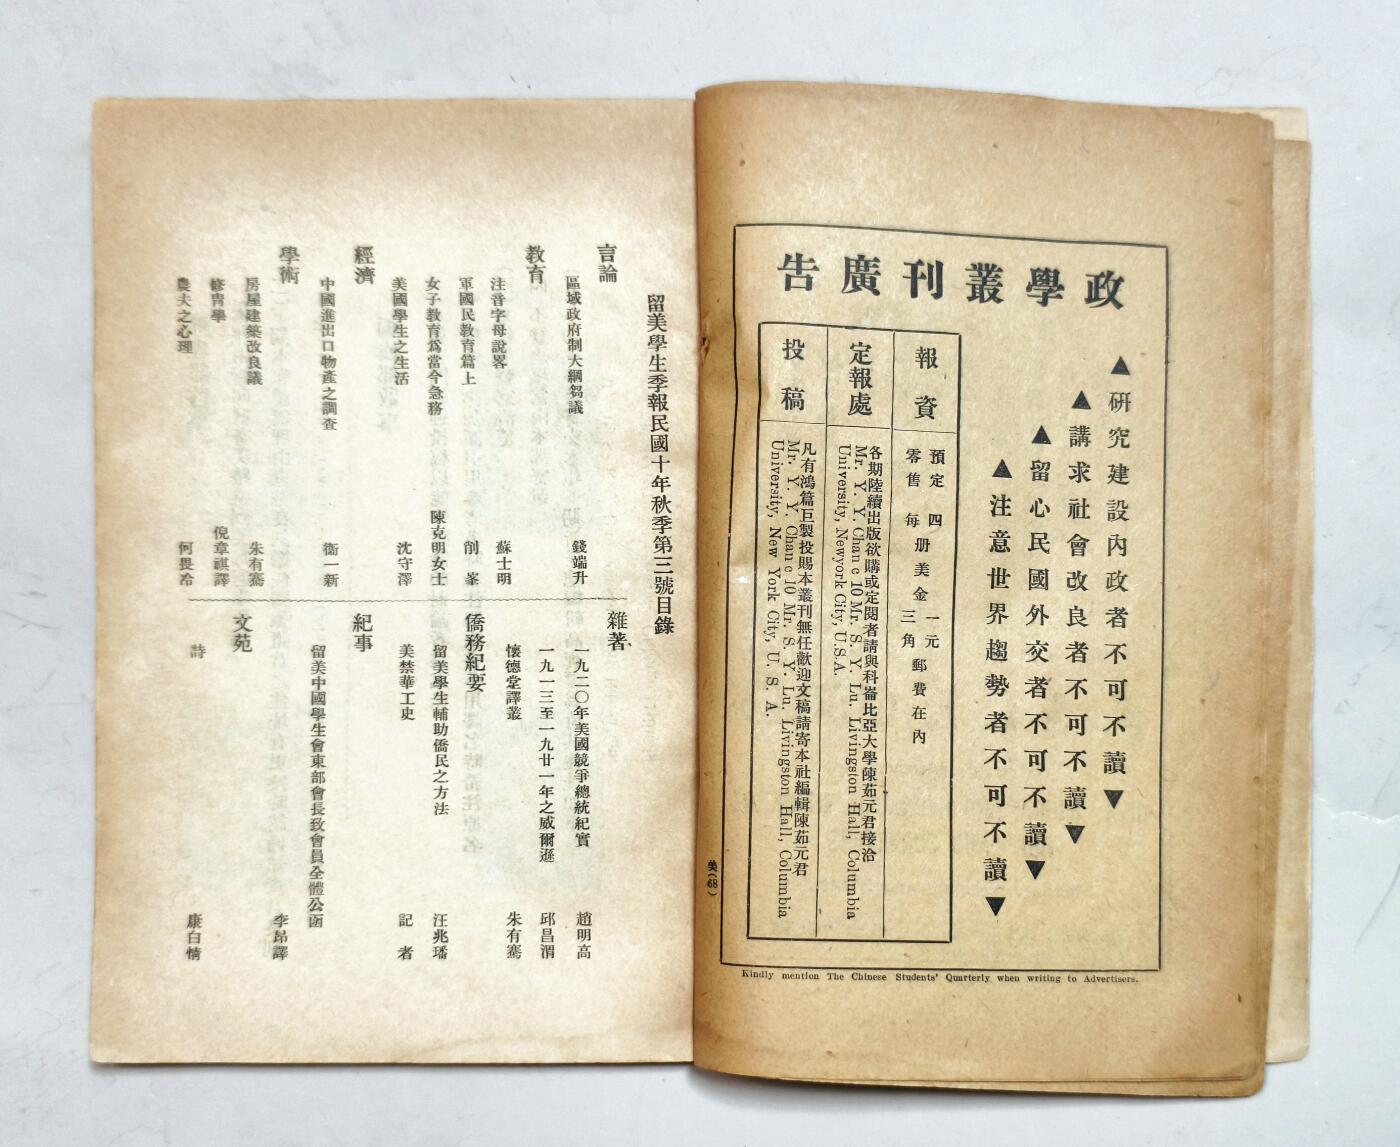 政學叢刊廣告
▲研究建設內政者不可不讀▼
▲講求社會改良者不可不讀▼
▲留心民國外交者不可不讀▼
▲注意世界趨勢者不可不讀▼
報資
預定四册美金一元
零售每三角郵費在內
定報處
各期陸續出版欲購或定閱者請與科崙比亞大學陳茹元君接洽
Mr. Y. Y. Chan c 10 Mr. S. Y. Lu. Livingston Hall, Columbia
University, Newyork City, U.S.A.
投稿
凡有鴻篇巨製投賜本叢刊無任歡迎文稿請寄本社編輯陳茹元君
Mr. Y. Y. Chan c 10 Mr. S. Y. Lu. Livingston Hall, Columbia
University, New York City, U. S. A.
美(68)
Kindly mention The Chinese Students' Quarterly when writing to Advertisers.
留美學生季報民國十年秋季第三號目錄
言論
區域政府制大綱芻議 錢端升
教育
注音字母說畧 蘇士明
軍國民教育篇上 削峯
女子教育爲當今急務 陳克明女士
美國學生之生活 沈守澤
經濟
中國進出口物產之調查 衞一新
學術
房屋建築改良議 朱有騫
修胄學 倪章祺譯
農夫之心理 何畏冷
雜著
一九二〇年美國競爭總統紀實 趙明高
一九一三至一九廿一年之威爾遜 邱昌渭
懷德堂譯叢 朱有騫
僑務紀要
留美學生輔助僑民之方法 汪兆璠
美禁華工史 記者
紀事
留美中國學生會東部會長致會員全體公函 李昂譯
文苑
詩 康白情